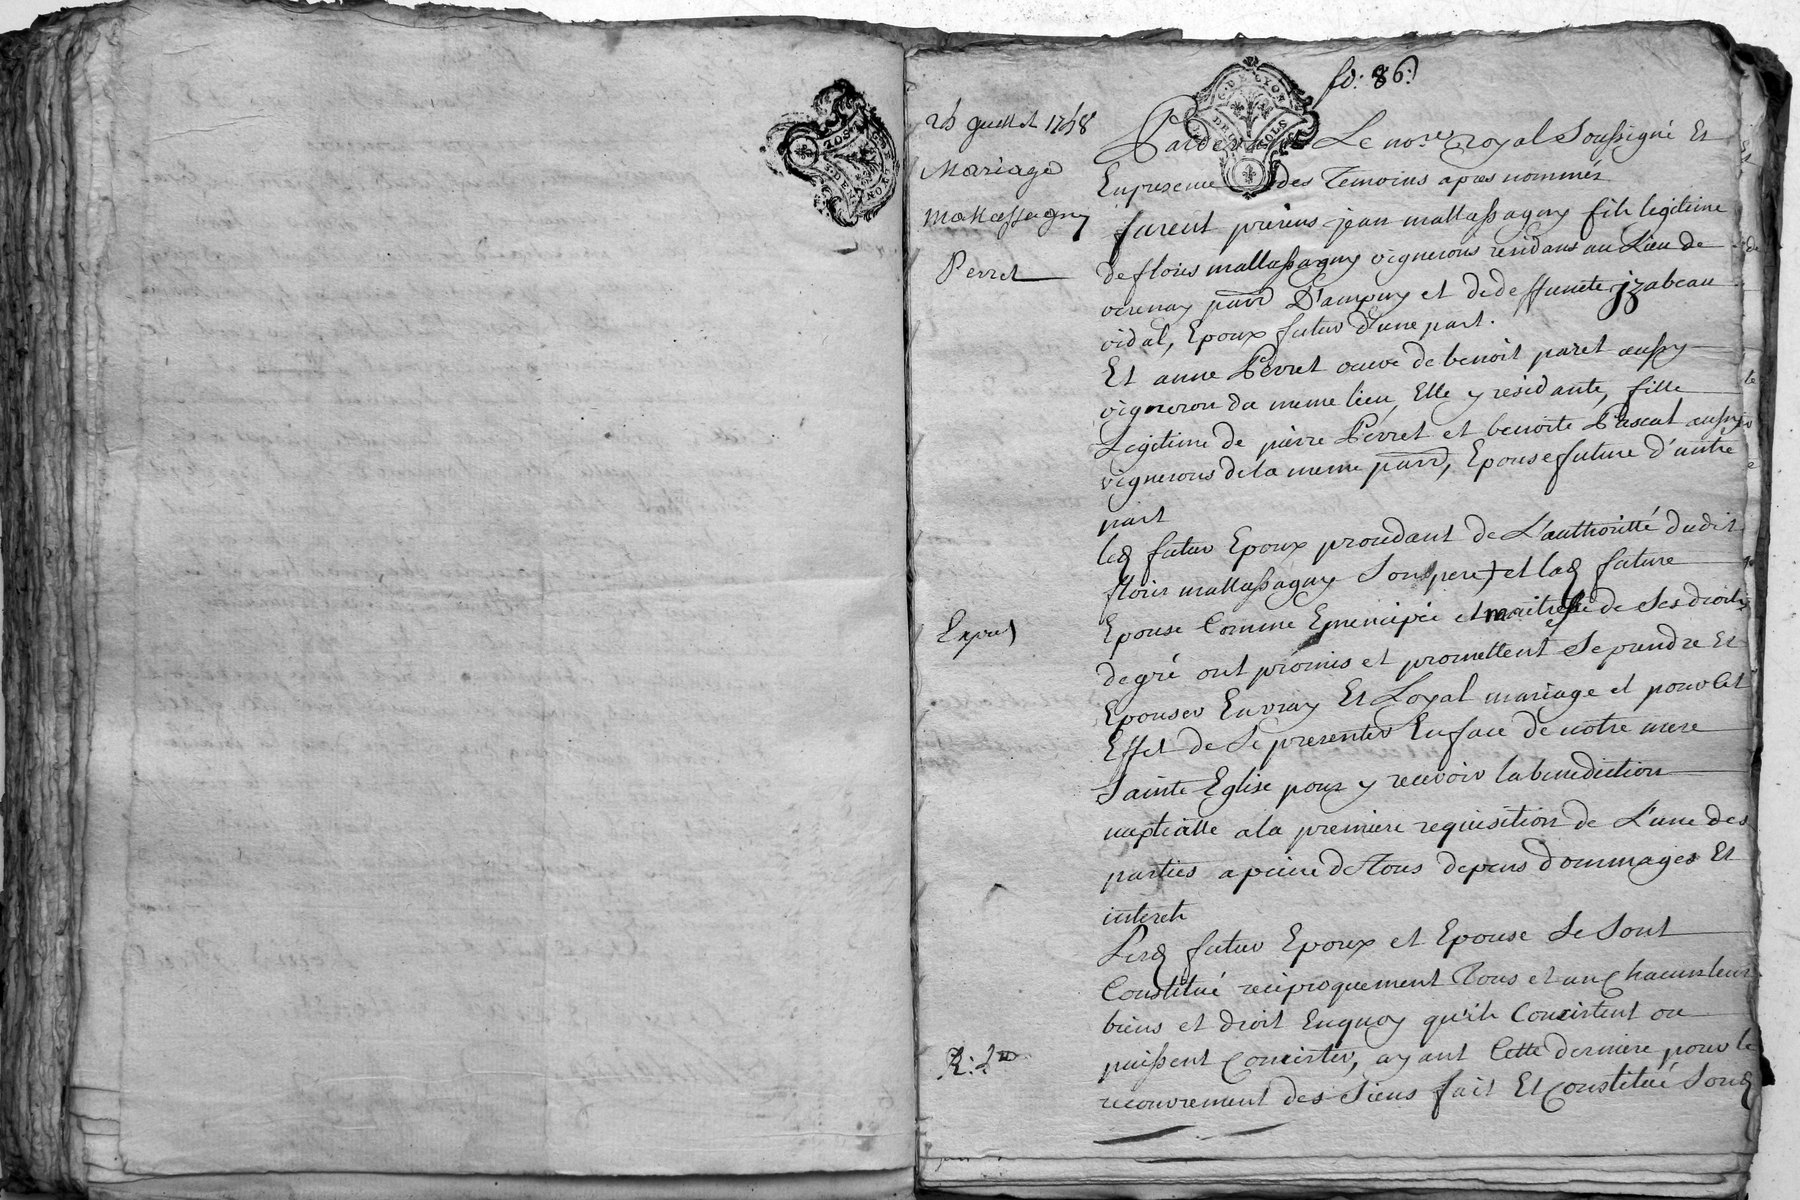 fo: 86.
25 Juillet 1758
Mariage
Mallassagny
Perret
Expé
R: 
G. DE LYON
DEUX SOLS
Pardevant Le no.re Royal Soussigné Et
En presence des Temoins apres nommés
furent présens jean mallassagny fils legitime
de floris mallassagny vignerons residans au Lieu de
verenay parr D'ampuy et de deffuncte jzabeau
vidal, Epoux futur d'une part.
Et anne Perret veuve de benoit paret aussy
vigneron du meme lieu, Elle y residante, fille
Legitime de pierre Perret et benoite Pascal aussy
vignerons de la meme parr, Epouse future d'autre
part
led futur Epoux procedant de L'authoritté dudit
floris mallassagny Son pere et lad future
Epouse Comme Emencipée et maitresse de Ses droits
de gré ont promis et promettent Se prendre Et
Epouser En vray Et Loyal mariage et pour Cet
Effet de Se presenter En face de notre mere
Sainte Eglise pour y recevoir la benediction
nuptialle a la premiere requisition de L'une des
parties a peine de Tous depens dommages Et
interets
Lesd futur Epoux et Epouse Se Sont
Constitué reciproquement Tous et un Chacuns leurs
biens et droit En quoy qu'ils Concistent ou
puissent Concister, ayant Cette derniere pour le
recouvrement des Siens fait Et Constitué Sond